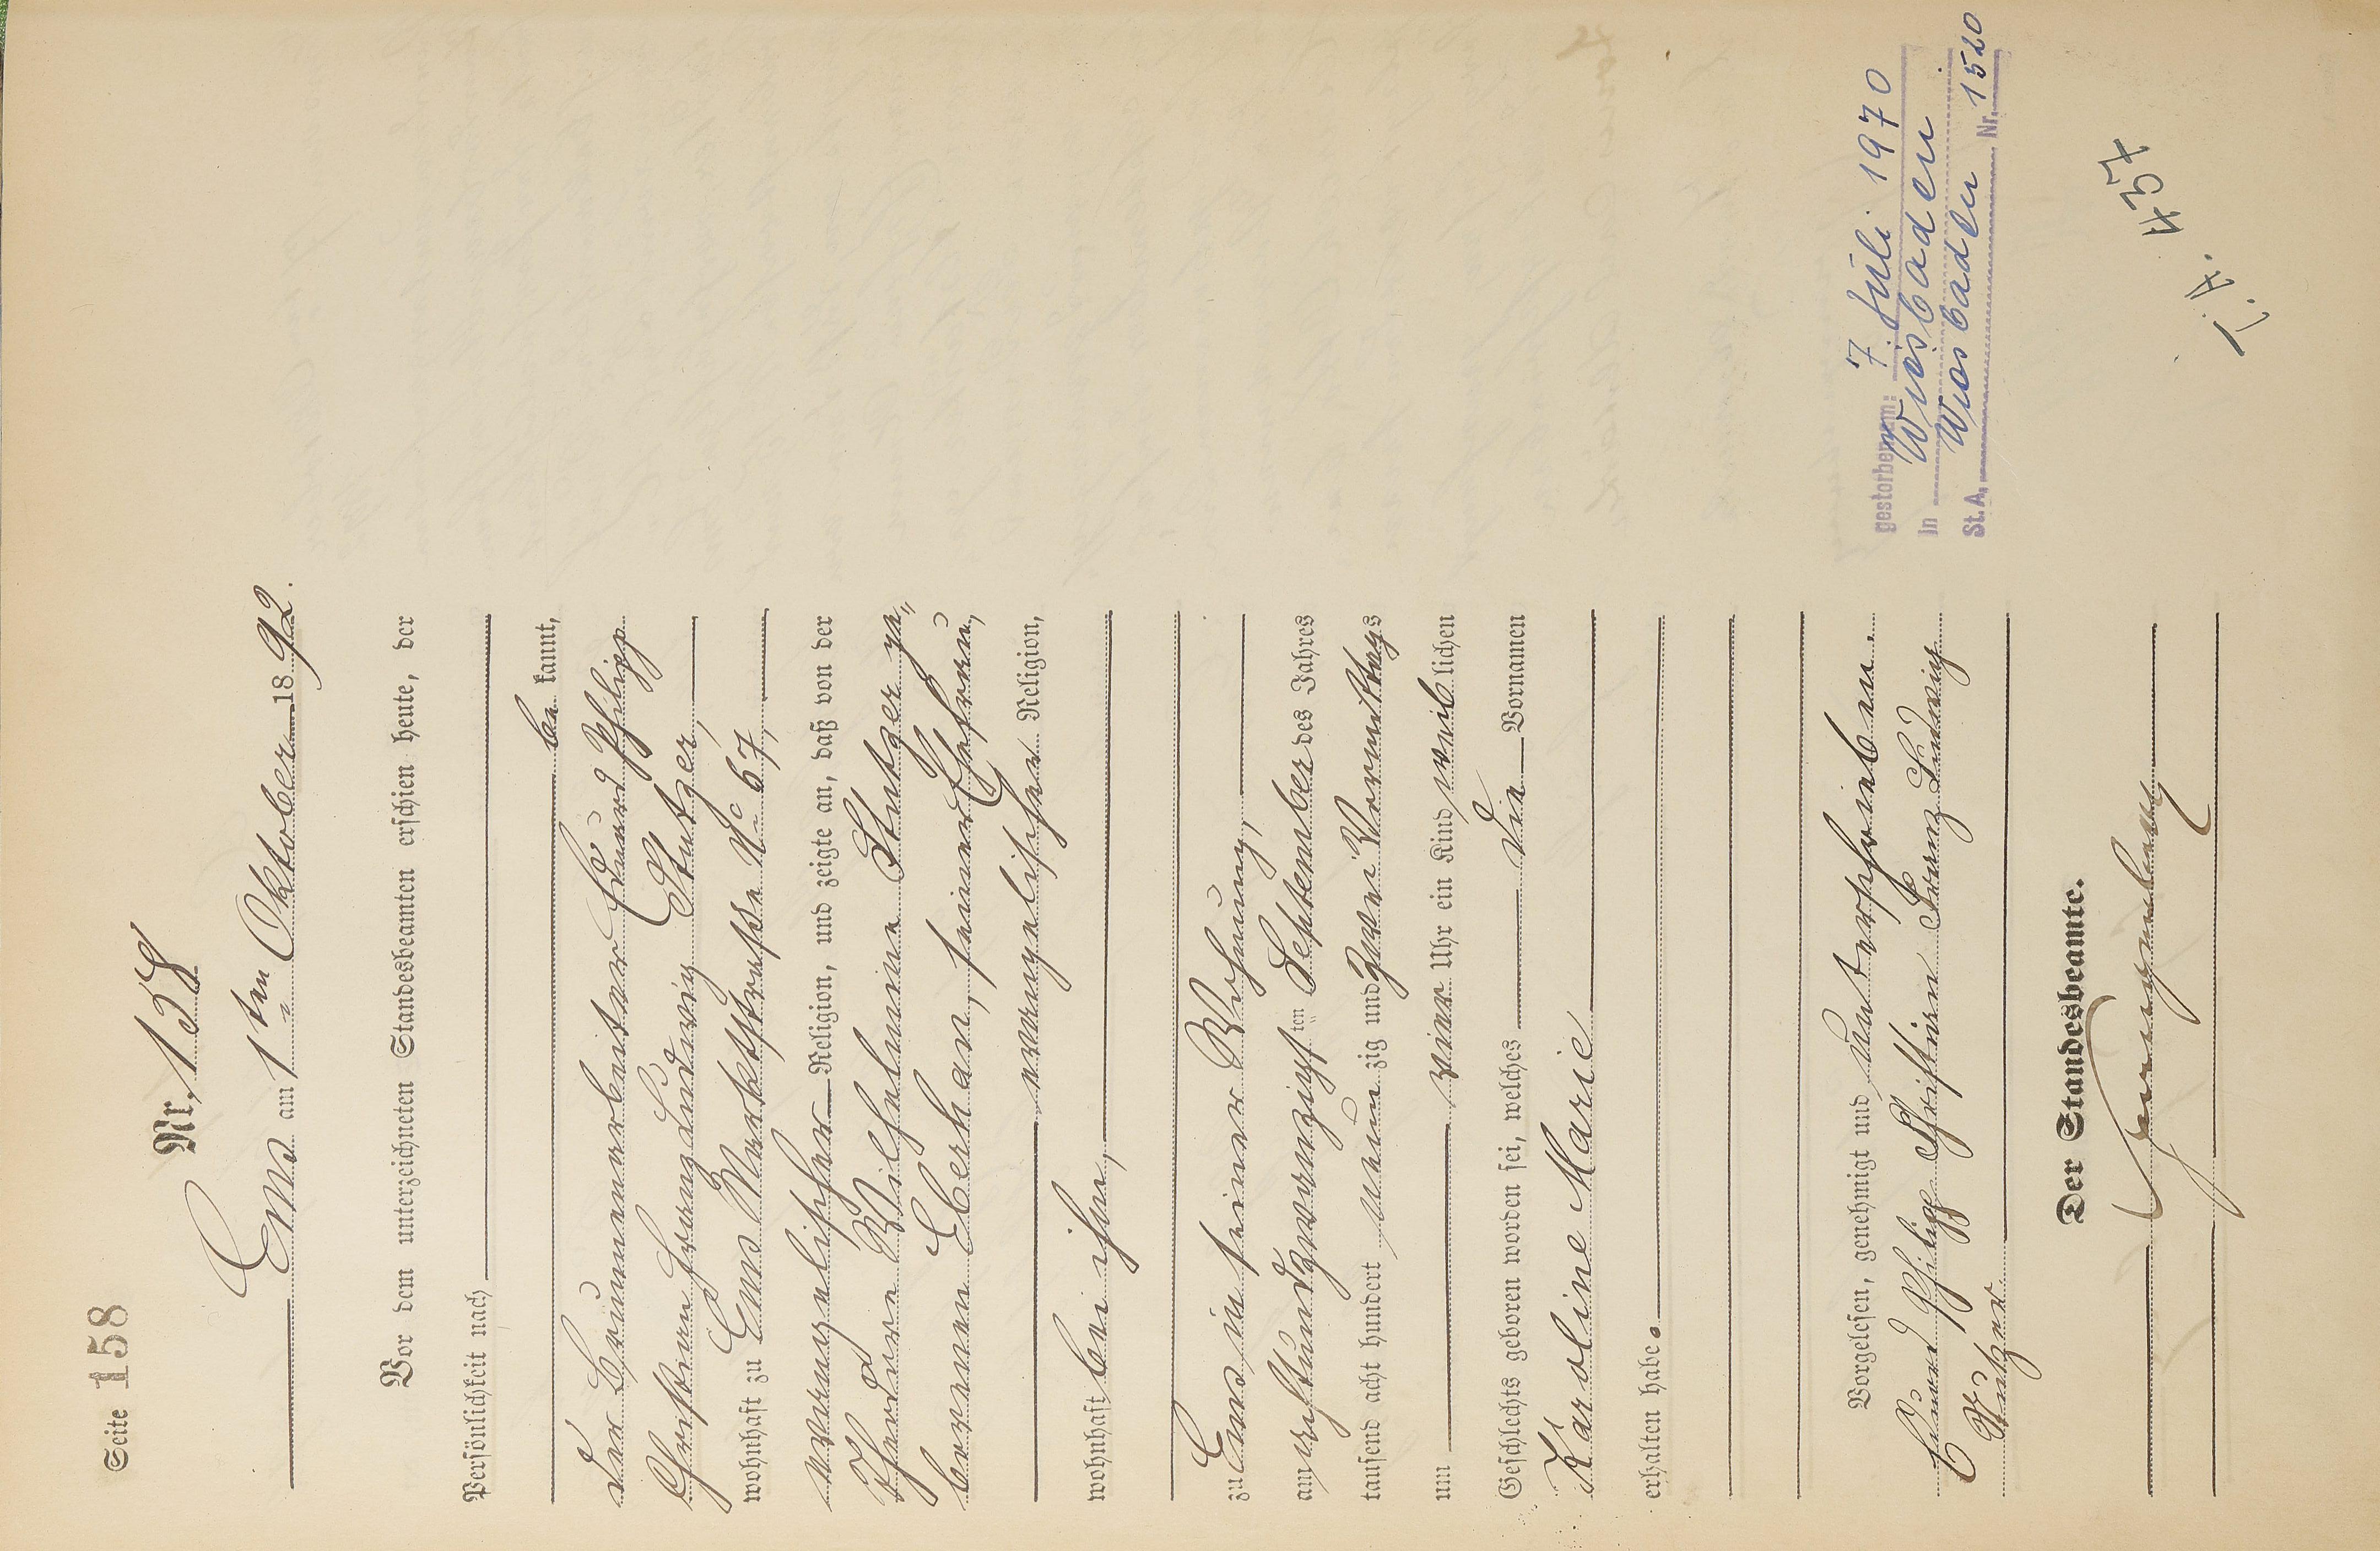 Seite 158
Nr. 158
Ems am 1ten Oktober 1892.
Vor dem unterzeichneten Standesbeamten erschien heute, der
Persönlichkeit nach
be kannt,
der Brunnenarbeiter Eduard Philipp
Christian Franz Ludwig Stutzer,
wohnhaft zu Ems Marktstraße No 67,
evangelischer Religion, und zeigte an, daß von der
Wilhelmine Stutzer ge-
borenen Eberhan, seiner Ehefrau,
evangelischer Religion,
wohnhaft bei ihm,
zu Ems in seiner Wohnung,
am achtundzwanzigsten September des Jahres
tausend acht hundert neunzig und zwei Vormittags
um vier Uhr ein Kind weiblichen
Geschlechts geboren worden sei, welches die Vornamen
Karoline Marie
erhalten habe.
Vorgelesen, genehmigt und unterschrieben.
Eduard Philipp Christian Franz Ludwig
Stutzer.
Der Standesbeamte.
gestorben am: 7. Juli 1970
in Wiesbaden
St. A. Wiesbaden Nr. 1520
457